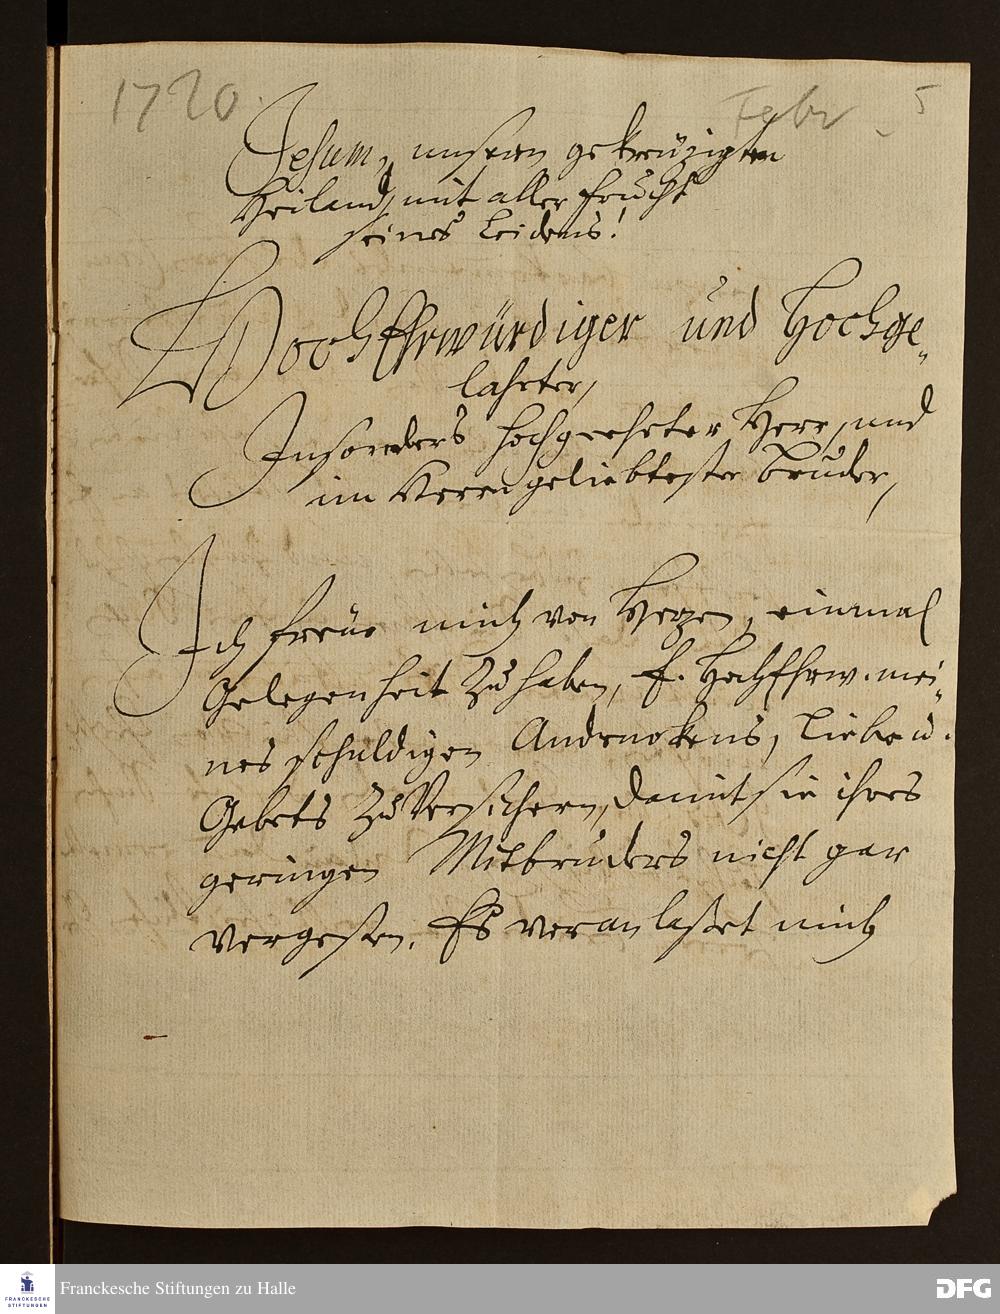 1720. Febr. 5
Jesum, unsern gekreüzigten
Heiland, mit aller Frucht
seines Leidens!
HochEhrwürdiger und Hochge-
lahrter,
Insonders hochgeehrter Herr, und
im Herrn geliebtester Bruder,
Ich freüe mich von Herzen, einmal
Gelegenheit zu haben, E. HochEhrw. mei-
nes schuldigen Andenckens, Liebe u.
Gebets zu versichern, damit sie ihres
geringen Mitbruders nicht gar
vergeßen. Es veranlaßet mich
FRANCKESCHE
STIFTUNGEN
Franckesche Stiftungen zu Halle
DFG